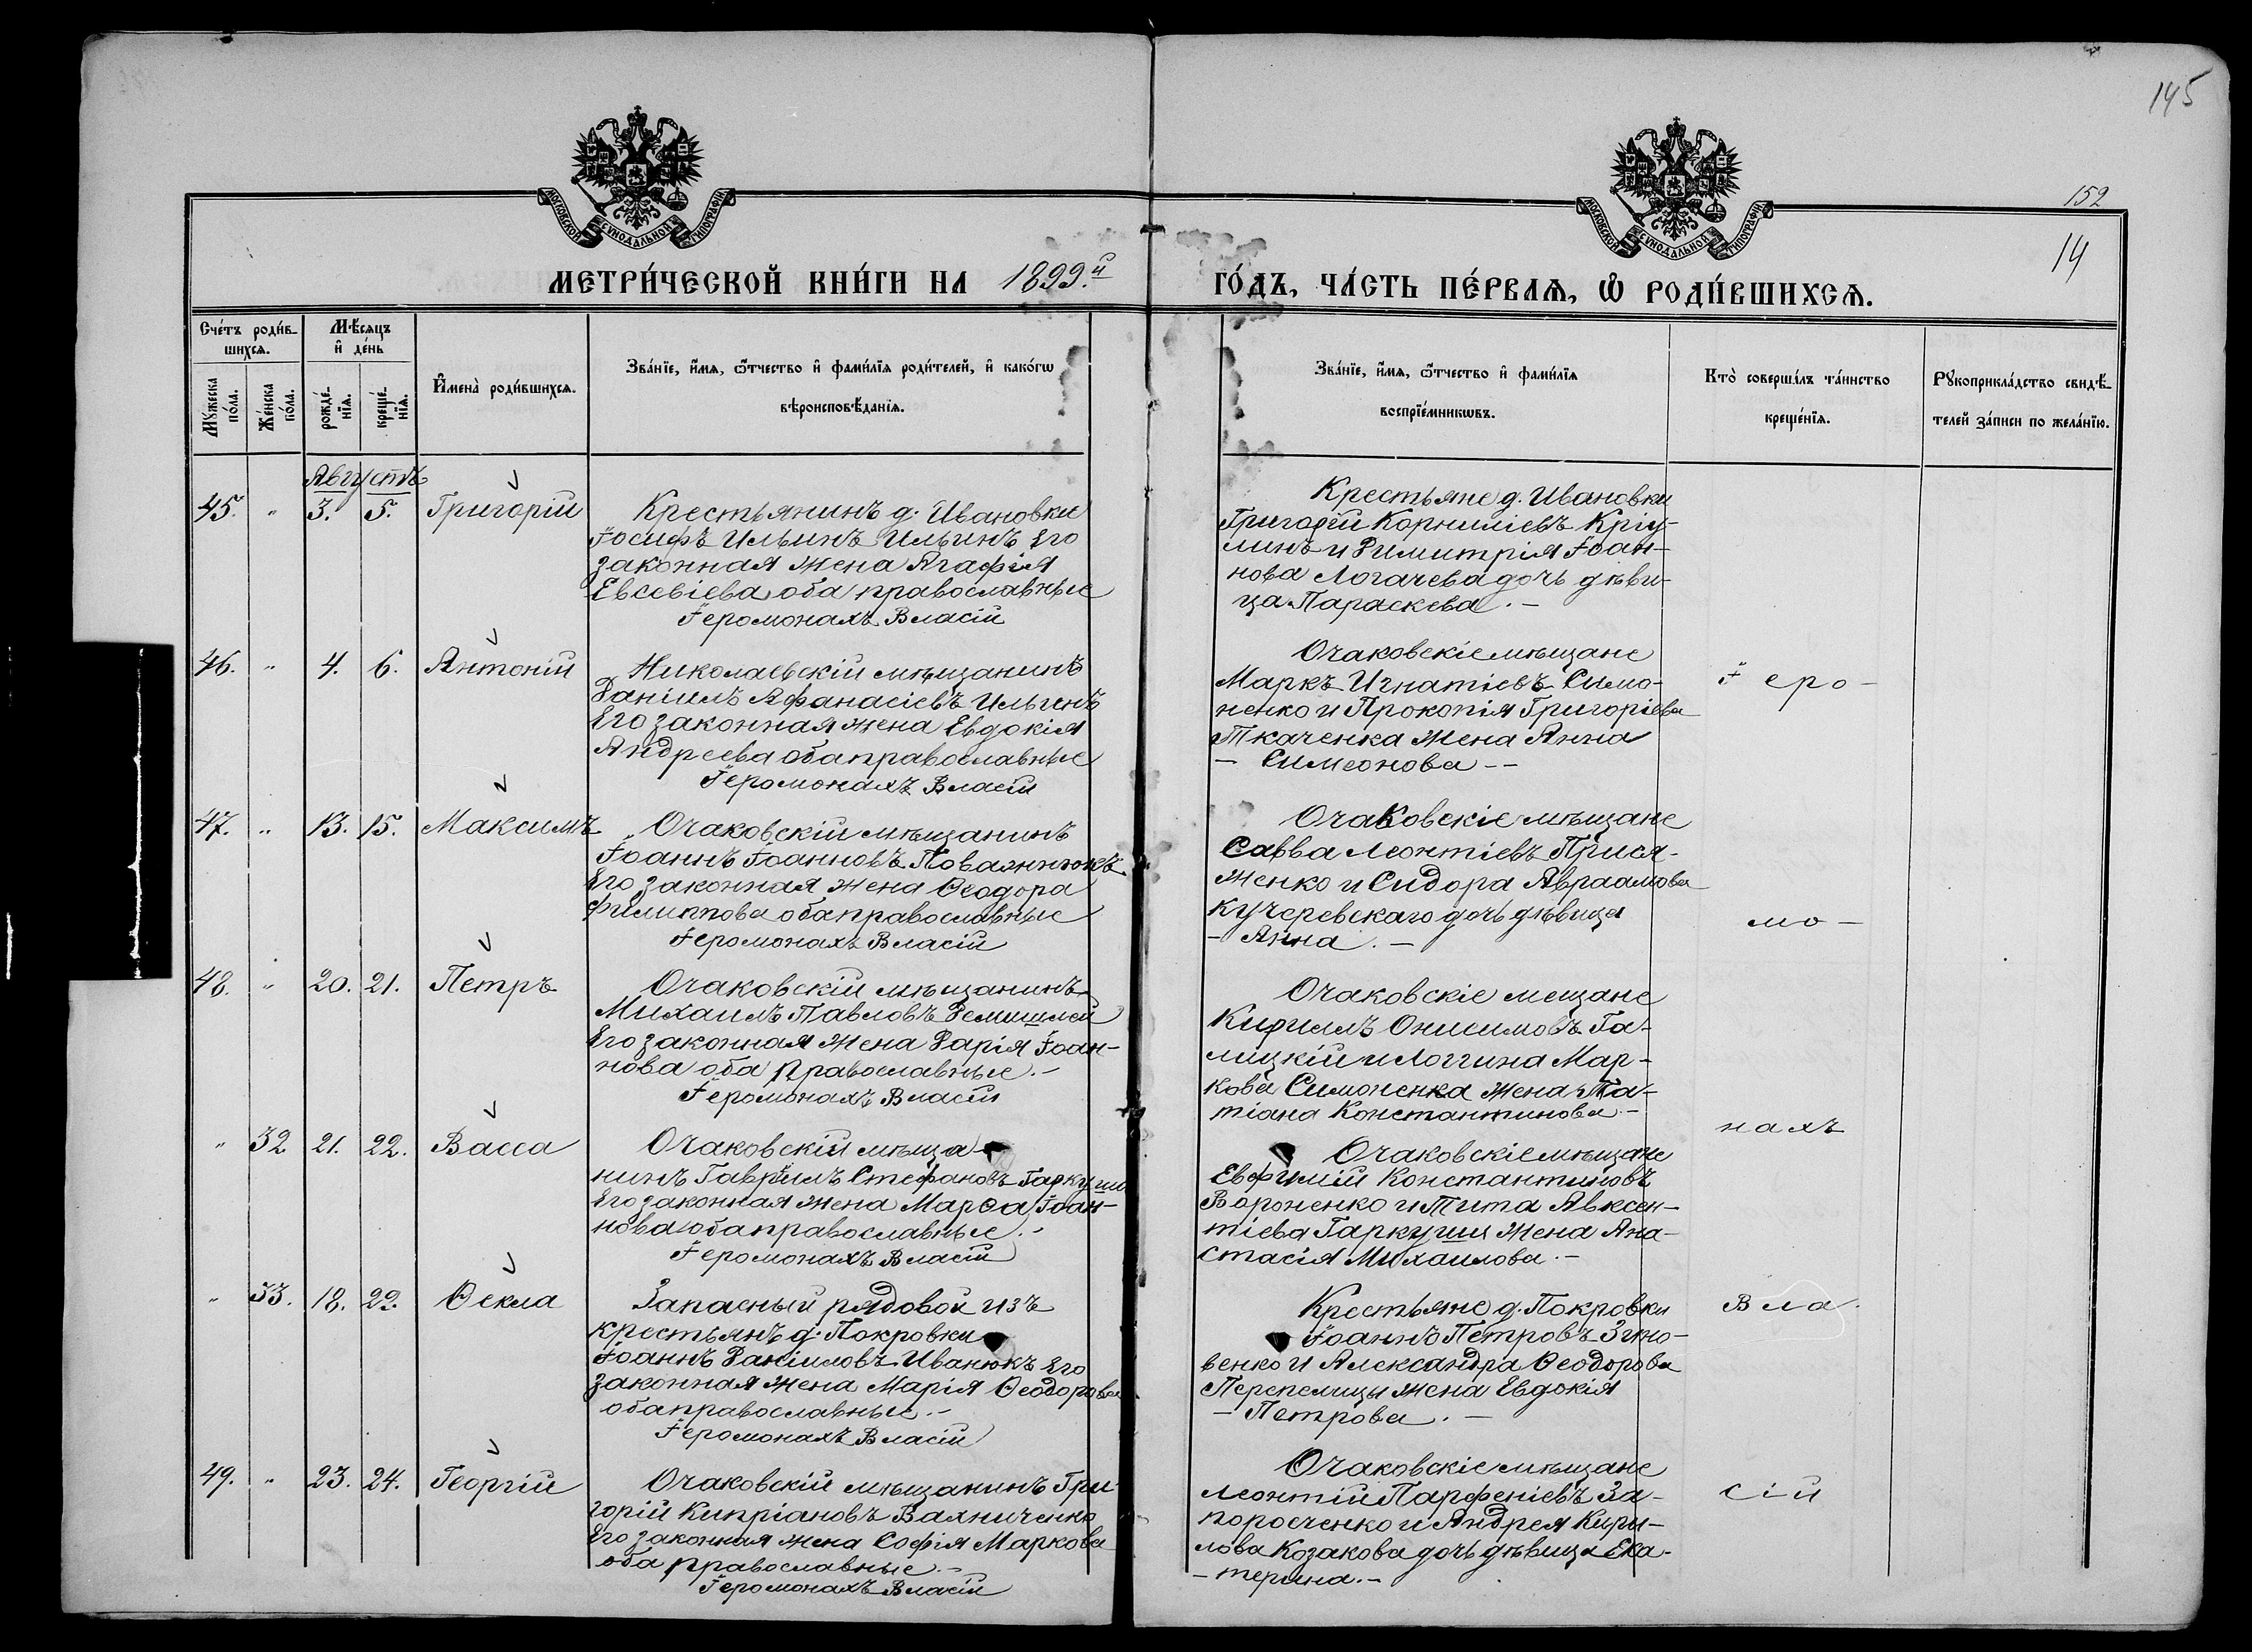 145
152
14
МОСКОВСКОЙ СѴНОДАЛЬНОЙ ТИПОГРАФІИ
МОСКОВСКОЙ СѴНОДАЛЬНОЙ ТИПОГРАФІИ
МЕТРИ́ЧЕСКОЙ КНИ́ГИ НА 1899.й ГО́ДЪ, ЧА́СТЬ ПЕ́РВАѦ, Ѽ РОДИ́ВШИХСѦ.
Сче́тъ роди́в-
шихсѧ.
Мꙋ́жеска по́ла.
Же́нска по́ла.
Мѣ́сѧцъ
и҆ де́нь
рожде́-
нїѧ.
креще́-
нїѧ.
И҆мена̀ роди́вшихсѧ.
Зва́нїе, и҆́мѧ, ѻ҆́тчество и҆ фами́лїѧ роди́телей, и҆ како́гѡ
вѣроисповѣ́данїѧ.
Зва́нїе, и҆́мѧ, ѻ҆́тчество и҆ фами́лїѧ
воспрїе́мникѡвъ.
Кто̀ соверша́лъ та́инство
креще́нїѧ.
Рꙋкоприкла́дство свидѣ́-
телей за́писи по жела́нїю.
Августъ
45. " 3. 5. Григорій
Крестьянинъ д. Ивановки
Іосифъ Ильинъ Ильинъ Его
законная жена Агафія
Евсевіева оба православные
Іеромонахъ Власій
Крестьяне д. Ивановки
Григорій Корниліевъ Кріу-
линъ и Димитрія Іоан-
нова Логачева дочь дѣви-
ца Параскева. –
46. " 4. 6. Антоній
Николаевскій мѣщанинъ
Даніилъ Афанасіевъ Ильинъ
Его законная жена Евдокія
Андреева оба православные
Іеромонахъ Власій
Очаковскіе мѣщане
Маркъ Игнатіевъ Симо-
ненко и Прокопія Григоріева
Ткаченка жена Анна
– Симеонова – –
Іеро-
47. " 13. 15. Максимъ
Очаковскій мѣщанинъ
Іоаннъ Іоанновъ
Его законная жена Ѳеодора
Филиппова оба православные
Іеромонахъ Власій
Очаковскіе мѣщане
Савва Леонтіевъ Прися-
женко и Сидора Авраамова
Кучеревскаго дочь дѣвица
– Анна. –
мо-
48. " 20. 21. Петръ
Очаковскій мѣщанинъ
Михаилъ Павловъ
Его законная жена Дарія Іоан-
нова оба православные. –
Іеромонахъ Власій
Очаковскіе мещане
Кириллъ Онисимовъ Га-
лицкій и Логгина Мар-
кова Симоненка жена Та-
тіана Константинова –
нахъ
" 32 21. 22. Васса
Очаковскій мѣща-
нинъ Гавріилъ Стефановъ Гаркуша
Его законная жена Марѳа Іоан-
нова оба православные. –
Іеромонахъ Власій
Очаковскіе мѣщане
Евфимій Константиновъ
Вороненко и Тита Авксен-
тіева Гаркуши жена Ана-
стасія Михаилова. –
" 33. 18. 22. Ѳекла
Запасный рядовой изъ
крестьянъ д. Покровки
Іоаннъ Даніиловъ Иванюкъ Его
законная жена Марія Ѳеодорова
оба православные. –
Іеромонахъ Власій
Крестьяне д. Покровки
Іоаннъ Петровъ Зино-
венко и Александра Ѳеодорова
Перепелицы жена Евдокія
– Петрова. –
Вла-
49. " 23. 24. Георгій
Очаковскій мѣщанинъ Гри-
горій Кипріановъ Вахниченко
Его законная жена Софія Маркова
оба православные. –
Іеромонахъ Власій
Очаковскіе мѣщане
Леонтій Парфеніевъ За-
поросченко и Андрея Кири-
лова Козакова дочь дѣвица Ека-
– терина. –
сій